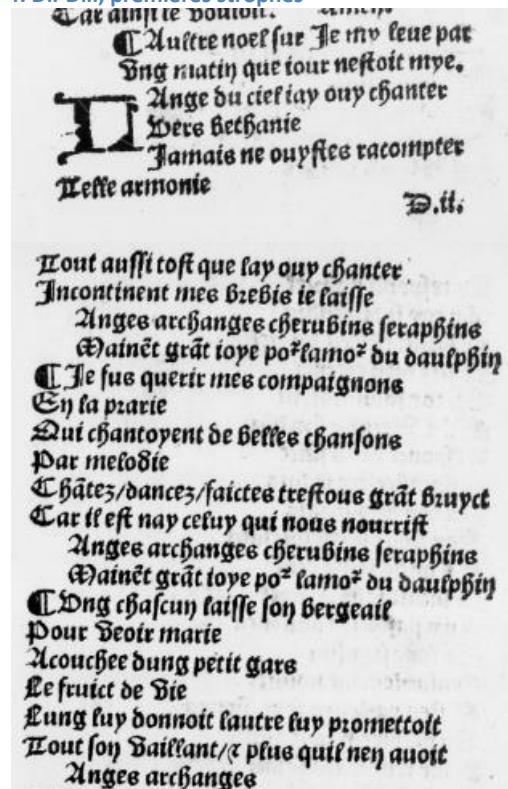 premières strophes
Car ainsi le vouloit. Amen.
¶ Aultre noel sur Je my leue par
Ung matin que iour nestoit mye.
L Ange du ciel iay ouy chanter
Vers bethanie
Jamais ne ouystes racompter
Telle armonie
D.ii.
Tout aussi tost que lay ouy chanter
Incontinent mes brebis ie laisse
Anges archanges cherubins seraphins
Mainēt grāt ioye poꝛ lamoꝛ du daulphin
¶ Je fus querir mes compaignons
En la prarie
Qui chantoyent de belles chansons
Par melodie
Chātez/dancez/faictes trestous grāt bruyct
Car il est nay celuy qui nous nourrist
Anges archanges cherubins seraphins
Mainēt grāt ioye poꝛ lamoꝛ du daulphin
¶ Ung chascun laisse son bergeail
Pour veoir marie
Acouchee dung petit gars
Le fruict de vie
Lung luy donnoit lautre luy promettoit
Tout son vaillant/⁊ plus quil nen auoit
Anges archanges